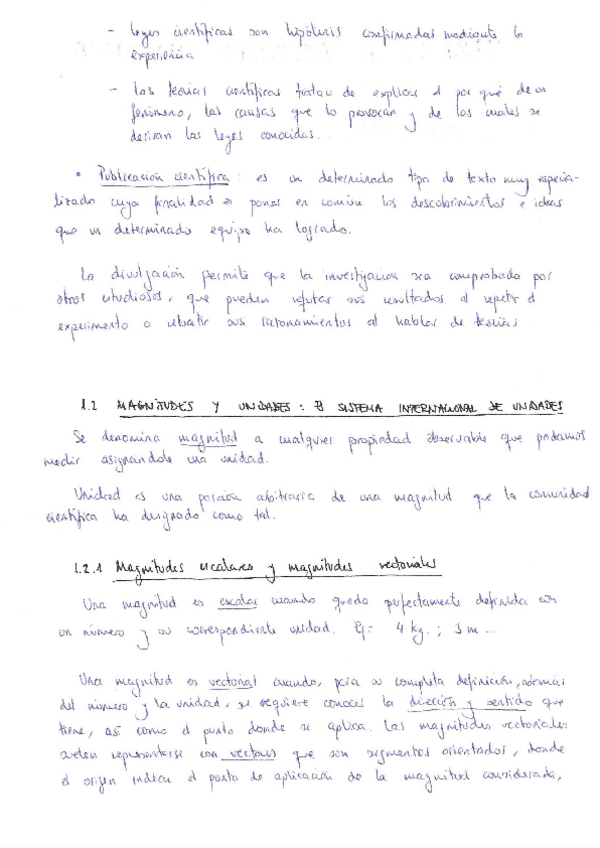 - leyes científicas son hipótesis confirmadas mediante la
experiencia
- Las teorías científicas tratan de explicar el por qué de un
fenómeno, las causas que lo provocan y de las cuales se
derivan las leyes conocidas.
• Publicación científica: es un determinado tipo de texto muy especia-
lizado cuya finalidad es poner en común los descubrimientos e ideas
que un determinado equipo ha logrado.
La divulgación permite que la investigación sea comprobada por
otros estudiosos, que pueden refutar sus resultados al repetir el
experimento o rebatir sus razonamientos al hablar de teorías
1.2 MAGNITUDES Y UNIDADES: El SISTEMA INTERNACIONAL DE UNIDADES
Se denomina magnitud a cualquier propiedad observable que podamos
medir asignándole una unidad.
Unidad es una porción arbitraria de una magnitud que la comunidad
científica ha designado como tal.
1.2.1 Magnitudes escalares y magnitudes vectoriales
Una magnitud es escalar cuando queda perfectamente definida con
un número y su correspondiente unidad. Ej: 4 kg.; 3 m...
Una magnitud es vectorial cuando, para su completa definición, además
del número y la unidad, se requiere conocer la dirección y sentido que
tiene, así como el punto donde se aplica. Las magnitudes vectoriales
suelen representarse con vectores que son segmentos orientados, donde
el origen indica el punto de aplicación de la magnitud considerada,